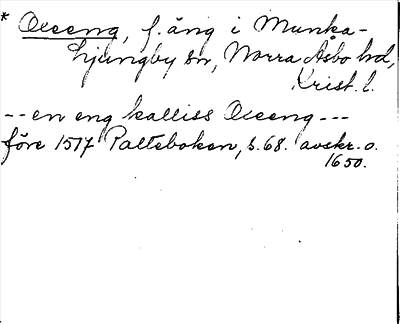 * Oxeeng, f. äng i Munka-
Ljungby sn, Norra Åsbo hd,
Krist. l.
-- en eng kalliss Oxeeng ---
före 1517 Palteboken, s. 68. avskr. o.
1650.